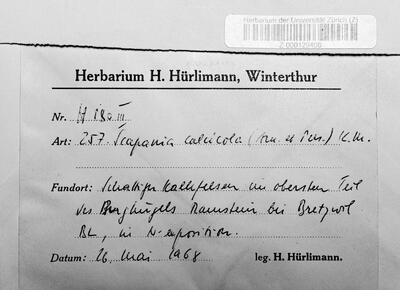 Herbarium der Universität Zürich (Z)
Z-000129406
Herbarium H. Hürlimann, Winterthur
Nr. H 180 III
Art: 257. Scapania calcicola (Arn. et Pers.) K. M.
Fundort: Schattiger Kalkfelsen im obersten Teil
des Burghügels Ramstein bei Bretzwil
BL, in N-exposition.
Datum: 26. Mai 1968 leg. H. Hürlimann.